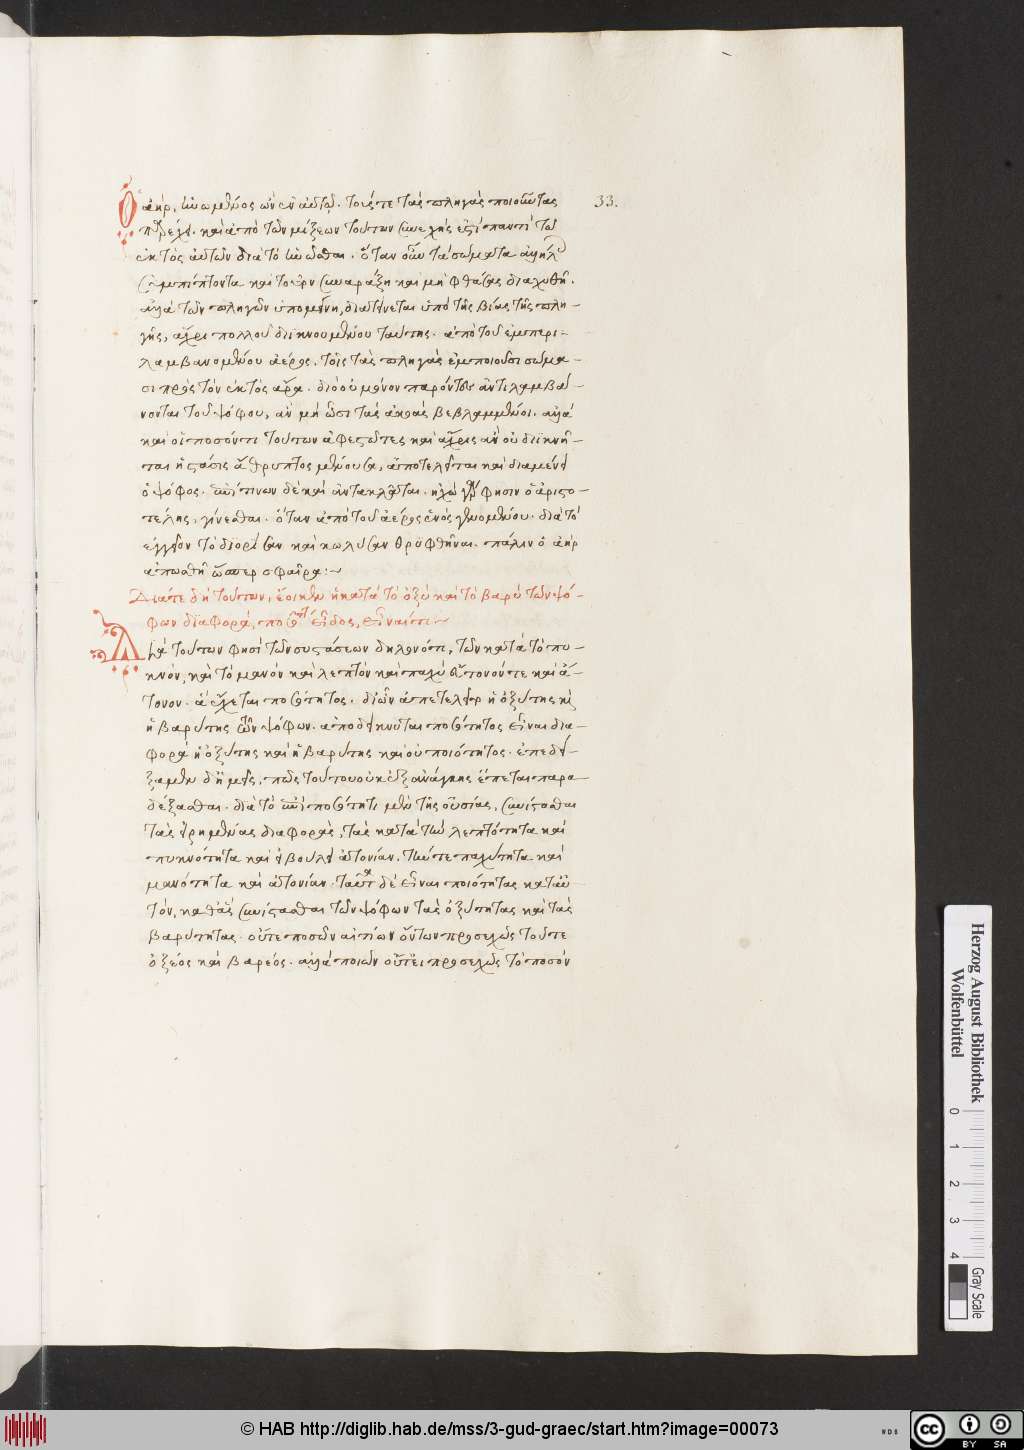 Ὁ ἀὴρ, ἡνωμένος ὢν ἐν αὐτῷ. τοῖς τε τὰς πληγὰς ποιοῦντας
33.
καὶ ἀπὸ τῶν μίξεων τούτων συνεχής ἐστι παντὶ τῷ
ἐκτὸς αὐτῶν διὰ τὸ ἡνῶσθαι. ὅταν οὖν τὰ σώματα ἀλλήλ
συμπίπτοντα καὶ τὸν συναράξῃ καὶ μὴ φθάσας διαχυθῇ.
ἀλλὰ τῶν πληγῶν ὑπομένῃ, διατείνεται ὑπὸ τῆς βίας τῆς πλη-
γῆς, ἄχρι πολλοῦ διϊκνουμένου ταύτης. ἀπὸ τοῦ ἐμπερι-
λαμβανομένου ἀέρος, τοῖς τὰς πληγὰς ἐμποιοῦσι σώμα-
σι πρὸς τὸν ἐκτὸς ἀέρα. διὸ οὐ μόνον παρόντες ἀντιλαμβά-
νονται τοῦ ψόφου, ἂν μὴ ὦσι τὰς ἀκοὰς βεβλαμμένοι. ἀλλὰ
καὶ οἱ ποσόν τι τούτων ἀφεστῶτες καὶ ἄχρις ἂν οὗ διϊκνῆ-
ται ἡ στάσις ἄθρυπτος μένουσα, ἀποτελεῖται καὶ διαμένει
ὁ ψόφος. ἐπί τινων δὲ καὶ ἀντακλᾶται. ἠχὼ γάρ φησιν ὁ ἀριστο-
τέλης, γίνεσθαι. ὅταν ἀπὸ τοῦ ἀέρος ἑνὸς γενομένου. διὰ τὸ
ἀγγεῖον τὸ διορίσαν καὶ κωλύσαν θρυφθῆναι. πάλιν ὁ ἀὴρ
ἀπωσθῇ ὥσπερ σφαῖρα:~
Διά τε δὴ τούτων, ἔοικεν ἡ κατὰ τὸ ὀξὺ καὶ τὸ βαρὺ τῶν ψό-
φων διαφορὰ, ποσότητος εἶδος, εἶναί τι~
Διὰ τούτων φησὶ τῶν συστάσεων δηλονότι, τῶν κατὰ τὸ πυ-
κνὸν, καὶ τὸ μανὸν καὶ λεπτὸν καὶ παχὺ εὔτονόν τε καὶ ἄ-
τονον. ἃ ἔχεται ποσότητος. δι' ὧν ἀπετελεῖτο ἡ ὀξύτης καὶ
ἡ βαρύτης τῶν ψόφων. ἀποδείκνυται ποσότητος εἶναι δια-
φορὰ ἡ ὀξύτης καὶ ἡ βαρύτης καὶ οὐ ποιότητος. ἐπεδεί-
ξαμεν δὴ ἡμεῖς, πῶς τοῦτο οὐκ ἐξ ἀνάγκης ἕπεται παρα-
δέξασθαι. διὰ τὸ ἐπὶ ποσότητι μὲν τῆς οὐσίας, συνίστασθαι
τὰς εἰρημένας διαφορὰς, τὰς κατὰ τὴν λεπτότητα καὶ
πυκνότητα καὶ εἰ βούλει εὐτονίαν. τήν τε παχύτητα καὶ
μανότητα καὶ ἀτονίαν. ταῦτα δὲ εἶναι ποιότητας κατ' αὐ
τόν, καθ' ἃς συνίστασθαι τῶν ψόφων τὰς ὀξύτητας καὶ τὰς
βαρύτητας. οὔτε ποσῶν αἰτίων ὄντων προσεχῶς τοῦ τε
ὀξέος καὶ βαρέος. ἀλλὰ ποιῶν οὔτ' εἰ προσεχῶς τὸ ποσὸν
Herzog August Bibliothek
Wolfenbüttel
0 1 2 3 4
Gray Scale
© HAB http://diglib.hab.de/mss/3-gud-graec/start.htm?image=00073
cc BY SA